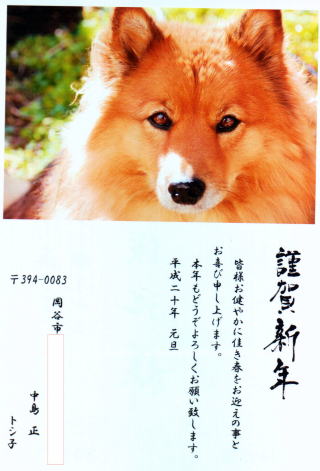 謹賀新年
皆様お健やかに佳き春をお迎えの事と
お喜び申し上げます。
本年もどうぞよろしくお願い致します。
平成二十年 元旦
〒394-0083
岡谷市
中島 正
トシ子